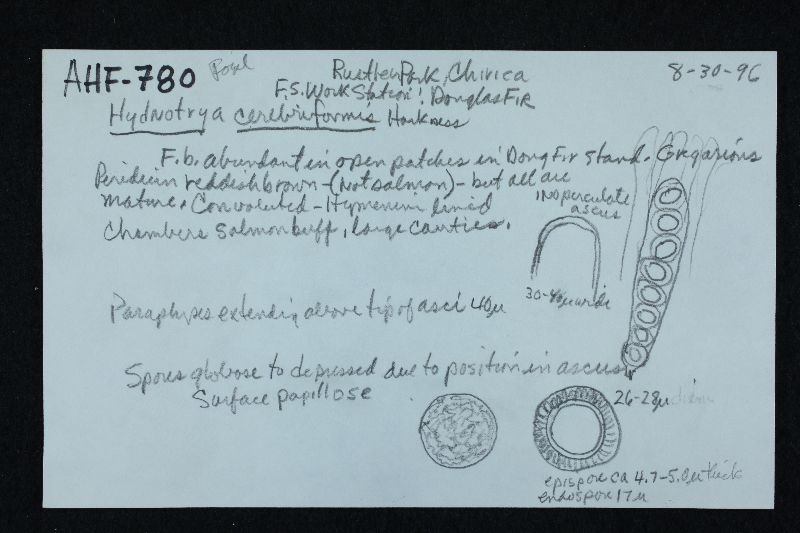 AHF-780
Rustler Park, Chirica
8-30-96
F.S. Work Station! Douglas Fir
Hydnotrya cerebriformis Harkness
F.b. abundant in open patches in Doug Fir stand. Gregarious
Peridium reddish brown - (not salmon) - but all are
mature. Convoluted - Hymenium lined
chambers salmon buff, large cavities.
inoperculate
ascus
30-40µ wide
Paraphyses extending above tip of asci 40µ
Spores globose to depressed due to position in ascus
Surface papillose
26-28µ diam
epispore ca 4.7-5.0µ thick
endospore 17µ